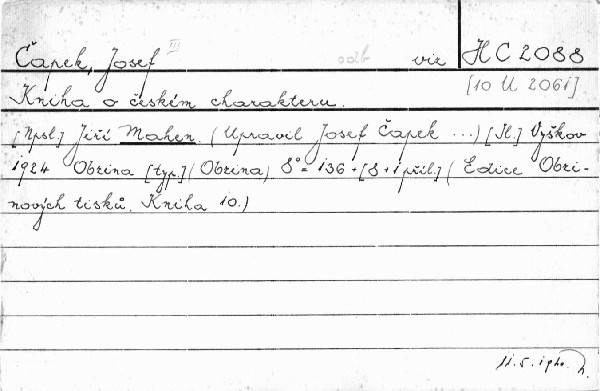 Čapek, Josef III odb viz HC 2088
[10 U 2061]
Kniha o českém charakteru.
[Npsl.] Jiří Mahen. (Upravil Josef Čapek ...) [Il.] Vyškov
1924 Obzina [typ.] (Obzina) 8° = 136 + [8 + 1 příl.] (Edice Obzi-
nových tisků. Kniha 10.)